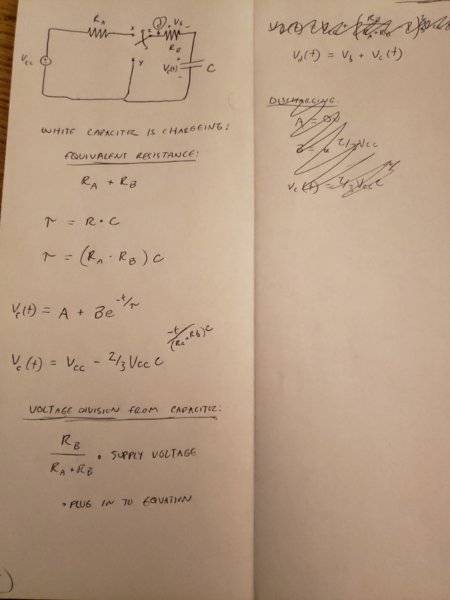 R_A
x
①
+ V_B -
V_CC
R_B
+
V_C(t)
C
-
Y
WHITE CAPACITOR IS CHARGEING:
EQUIVALENT RESISTANCE:
R_A + R_B
τ = R · C
τ = (R_A · R_B) C
V_C(t) = A + Be^{-t/τ}
V_C(t) = V_CC - 2/3 V_CC e^{-t/(R_A+R_B)C}
VOLTAGE DIVISION FROM CAPACITOR:
R_B / (R_A + R_B) • SUPPLY VOLTAGE
• PLUG IN TO EQUATION
V_d(t) = V_b + V_C(t)
DISCHARGING
A =
B = 2/3 V_CC
V_C(t) = 2/3 V_CC e